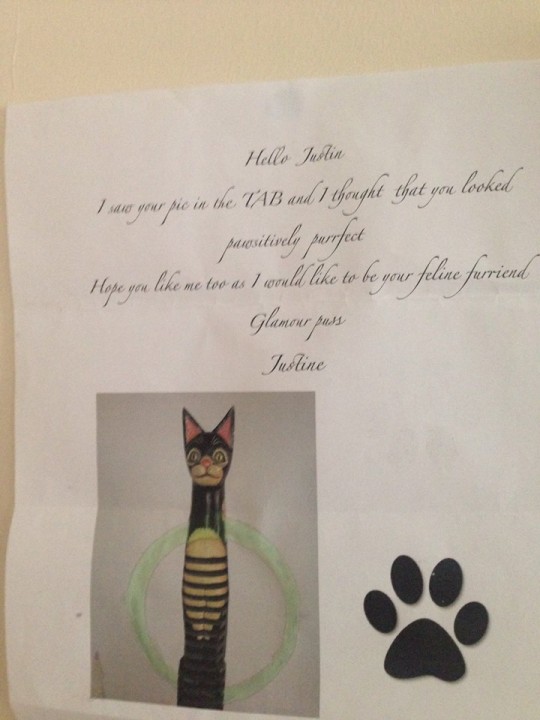 Hello Justin
I saw your pic in the TAB and I thought that you looked
pawsitively purrfect
Hope you like me too as I would like to be your feline furriend
Glamour puss
Justine